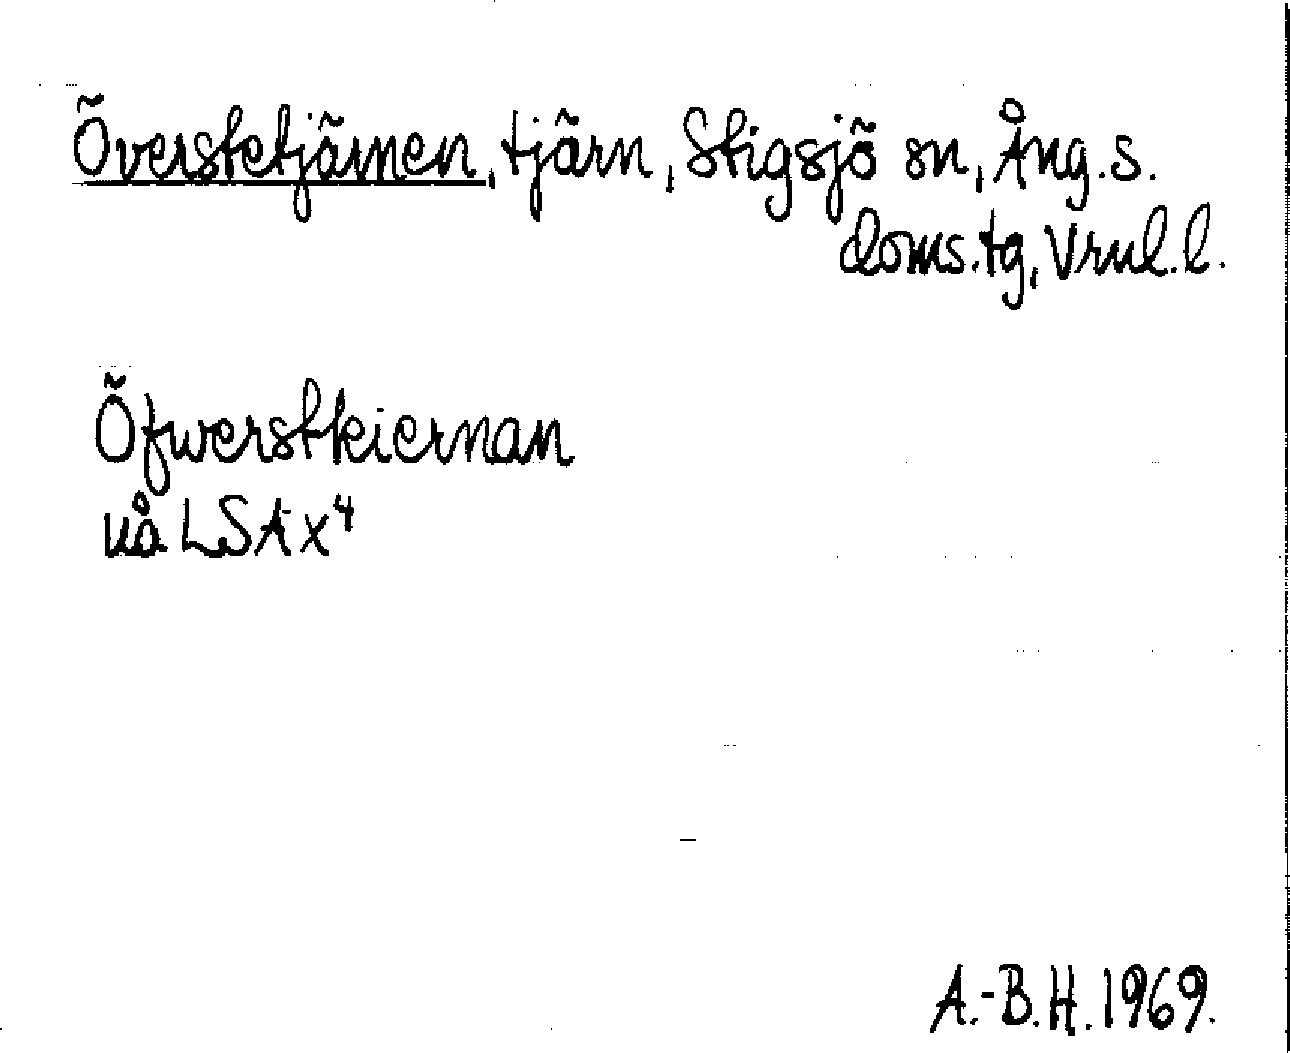 Överstetjärnen, tjärn, Stigsjö sn, Ång.s.
doms.tg, Vrnl.l.
Öfwerstkiernan
uå LSA x⁴
A.-B.H. 1969.